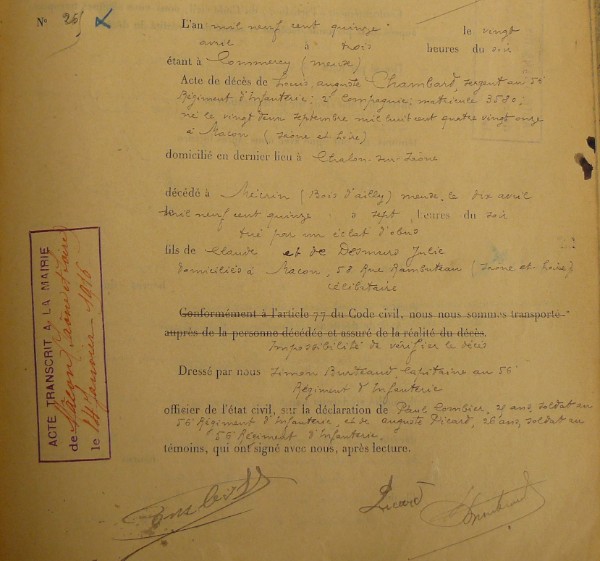 N° 25
L'an mil neuf cent quinze le vingt
avril à trois heures du soir
étant à Commercy (meuse)
Acte de décès de Louis, auguste Chambard, sergent au 56e
Régiment d'Infanterie; 2e Compagnie; matricule 3580;
né le vingt deux septembre mil huit cent quatre vingt onze
à Macon (Saône et Loire)
domicilié en dernier lieu à Chalon-sur-Saône
décédé à Mécrin (Bois d'ailly) meuse, le dix avril
mil neuf cent quinze à sept heures du soir
tué par un éclat d'obus
fils de Claude et de Desmurs Julie
domiciliés à Macon, 58 Rue Rambuteau (Saône et Loire)
célibataire
Conformément à l'article 77 du Code civil, nous nous sommes transporté
auprès de la personne décédée et assuré de la réalité du décès.
Impossibilité de vérifier le décès
Dressé par nous Simon Capitaine au 56e
Régiment d'Infanterie
officier de l'état civil, sur la déclaration de Paul Combier, ans, soldat au
56e Régiment d'Infanterie, et de auguste Picard, 26 ans, soldat au
56e Régiment d'Infanterie,
témoins, qui ont signé avec nous, après lecture.
Picard
ACTE TRANSCRIT A LA MAIRIE
de Macon, Saône et Loire
le 14 Janvier 1916